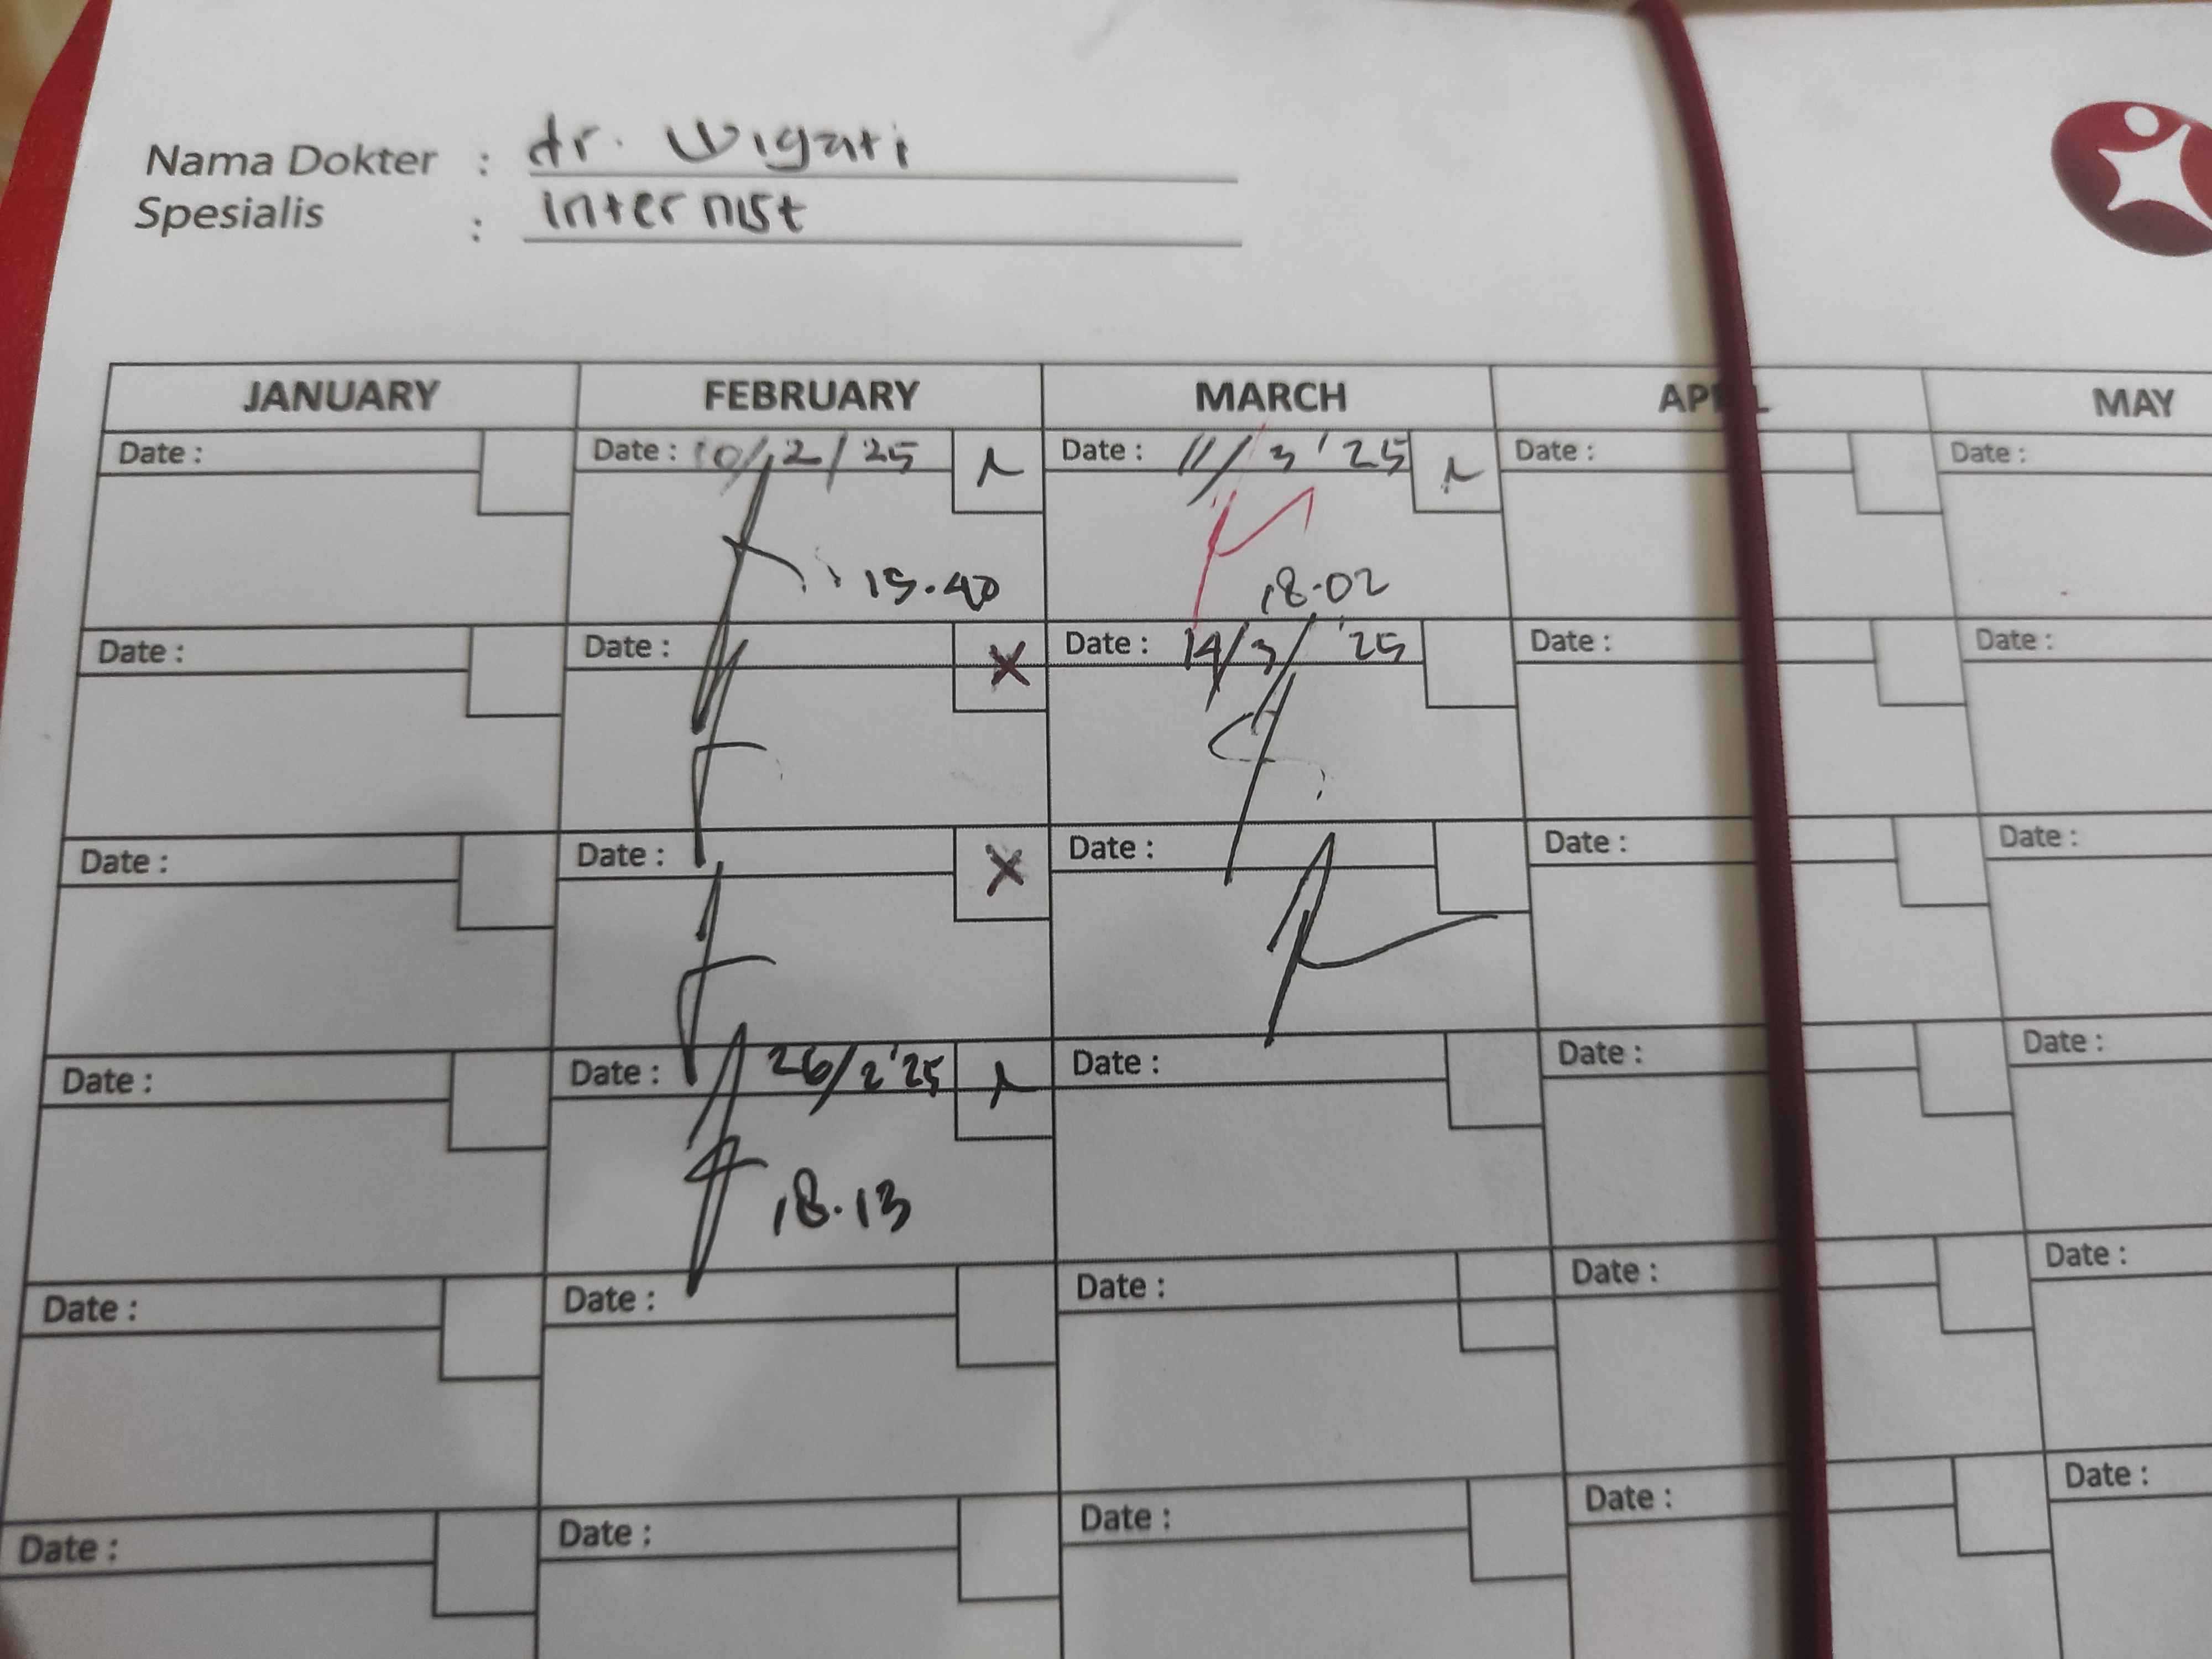 Nama Dokter : dr. Wigati
Spesialis : internist
JANUARY FEBRUARY MARCH APRIL MAY
Date : Date : 10/2/25 Date : 11/3 '25 Date : Date :
15.40 18.02
Date : Date : X Date : 14/3/ '25 Date : Date :
Date : Date : X Date : Date : Date :
Date : Date : 26/2 '25 Date : Date : Date :
18.13
Date : Date : Date : Date : Date :
Date : Date : Date : Date : Date :